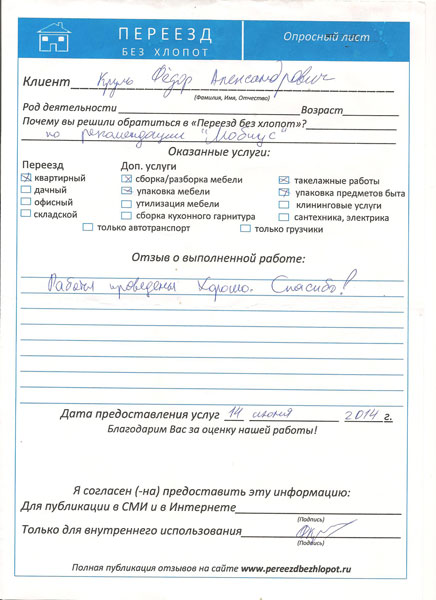 ПЕРЕЕЗД
БЕЗ ХЛОПОТ
Опросный лист
Клиент Круль Фёдор Александрович
(Фамилия, Имя, Отчество)
Род деятельности Возраст
Почему вы решили обратиться в «Переезд без хлопот»?
по рекомендации "Мобиус"
Оказанные услуги:
Переезд Доп. услуги
квартирный сборка/разборка мебели такелажные работы
дачный упаковка мебели упаковка предметов быта
офисный утилизация мебели клининговые услуги
складской сборка кухонного гарнитура сантехника, электрика
только автотранспорт только грузчики
Отзыв о выполненной работе:
Работы проведены хорошо. Спасибо!
Дата предоставления услуг 14 июня 2014 г.
Благодарим Вас за оценку нашей работы!
Я согласен (-на) предоставить эту информацию:
Для публикации в СМИ и в Интернете
(Подпись)
Только для внутреннего использования
(Подпись)
Полная публикация отзывов на сайте www.pereezdbezhlopot.ru